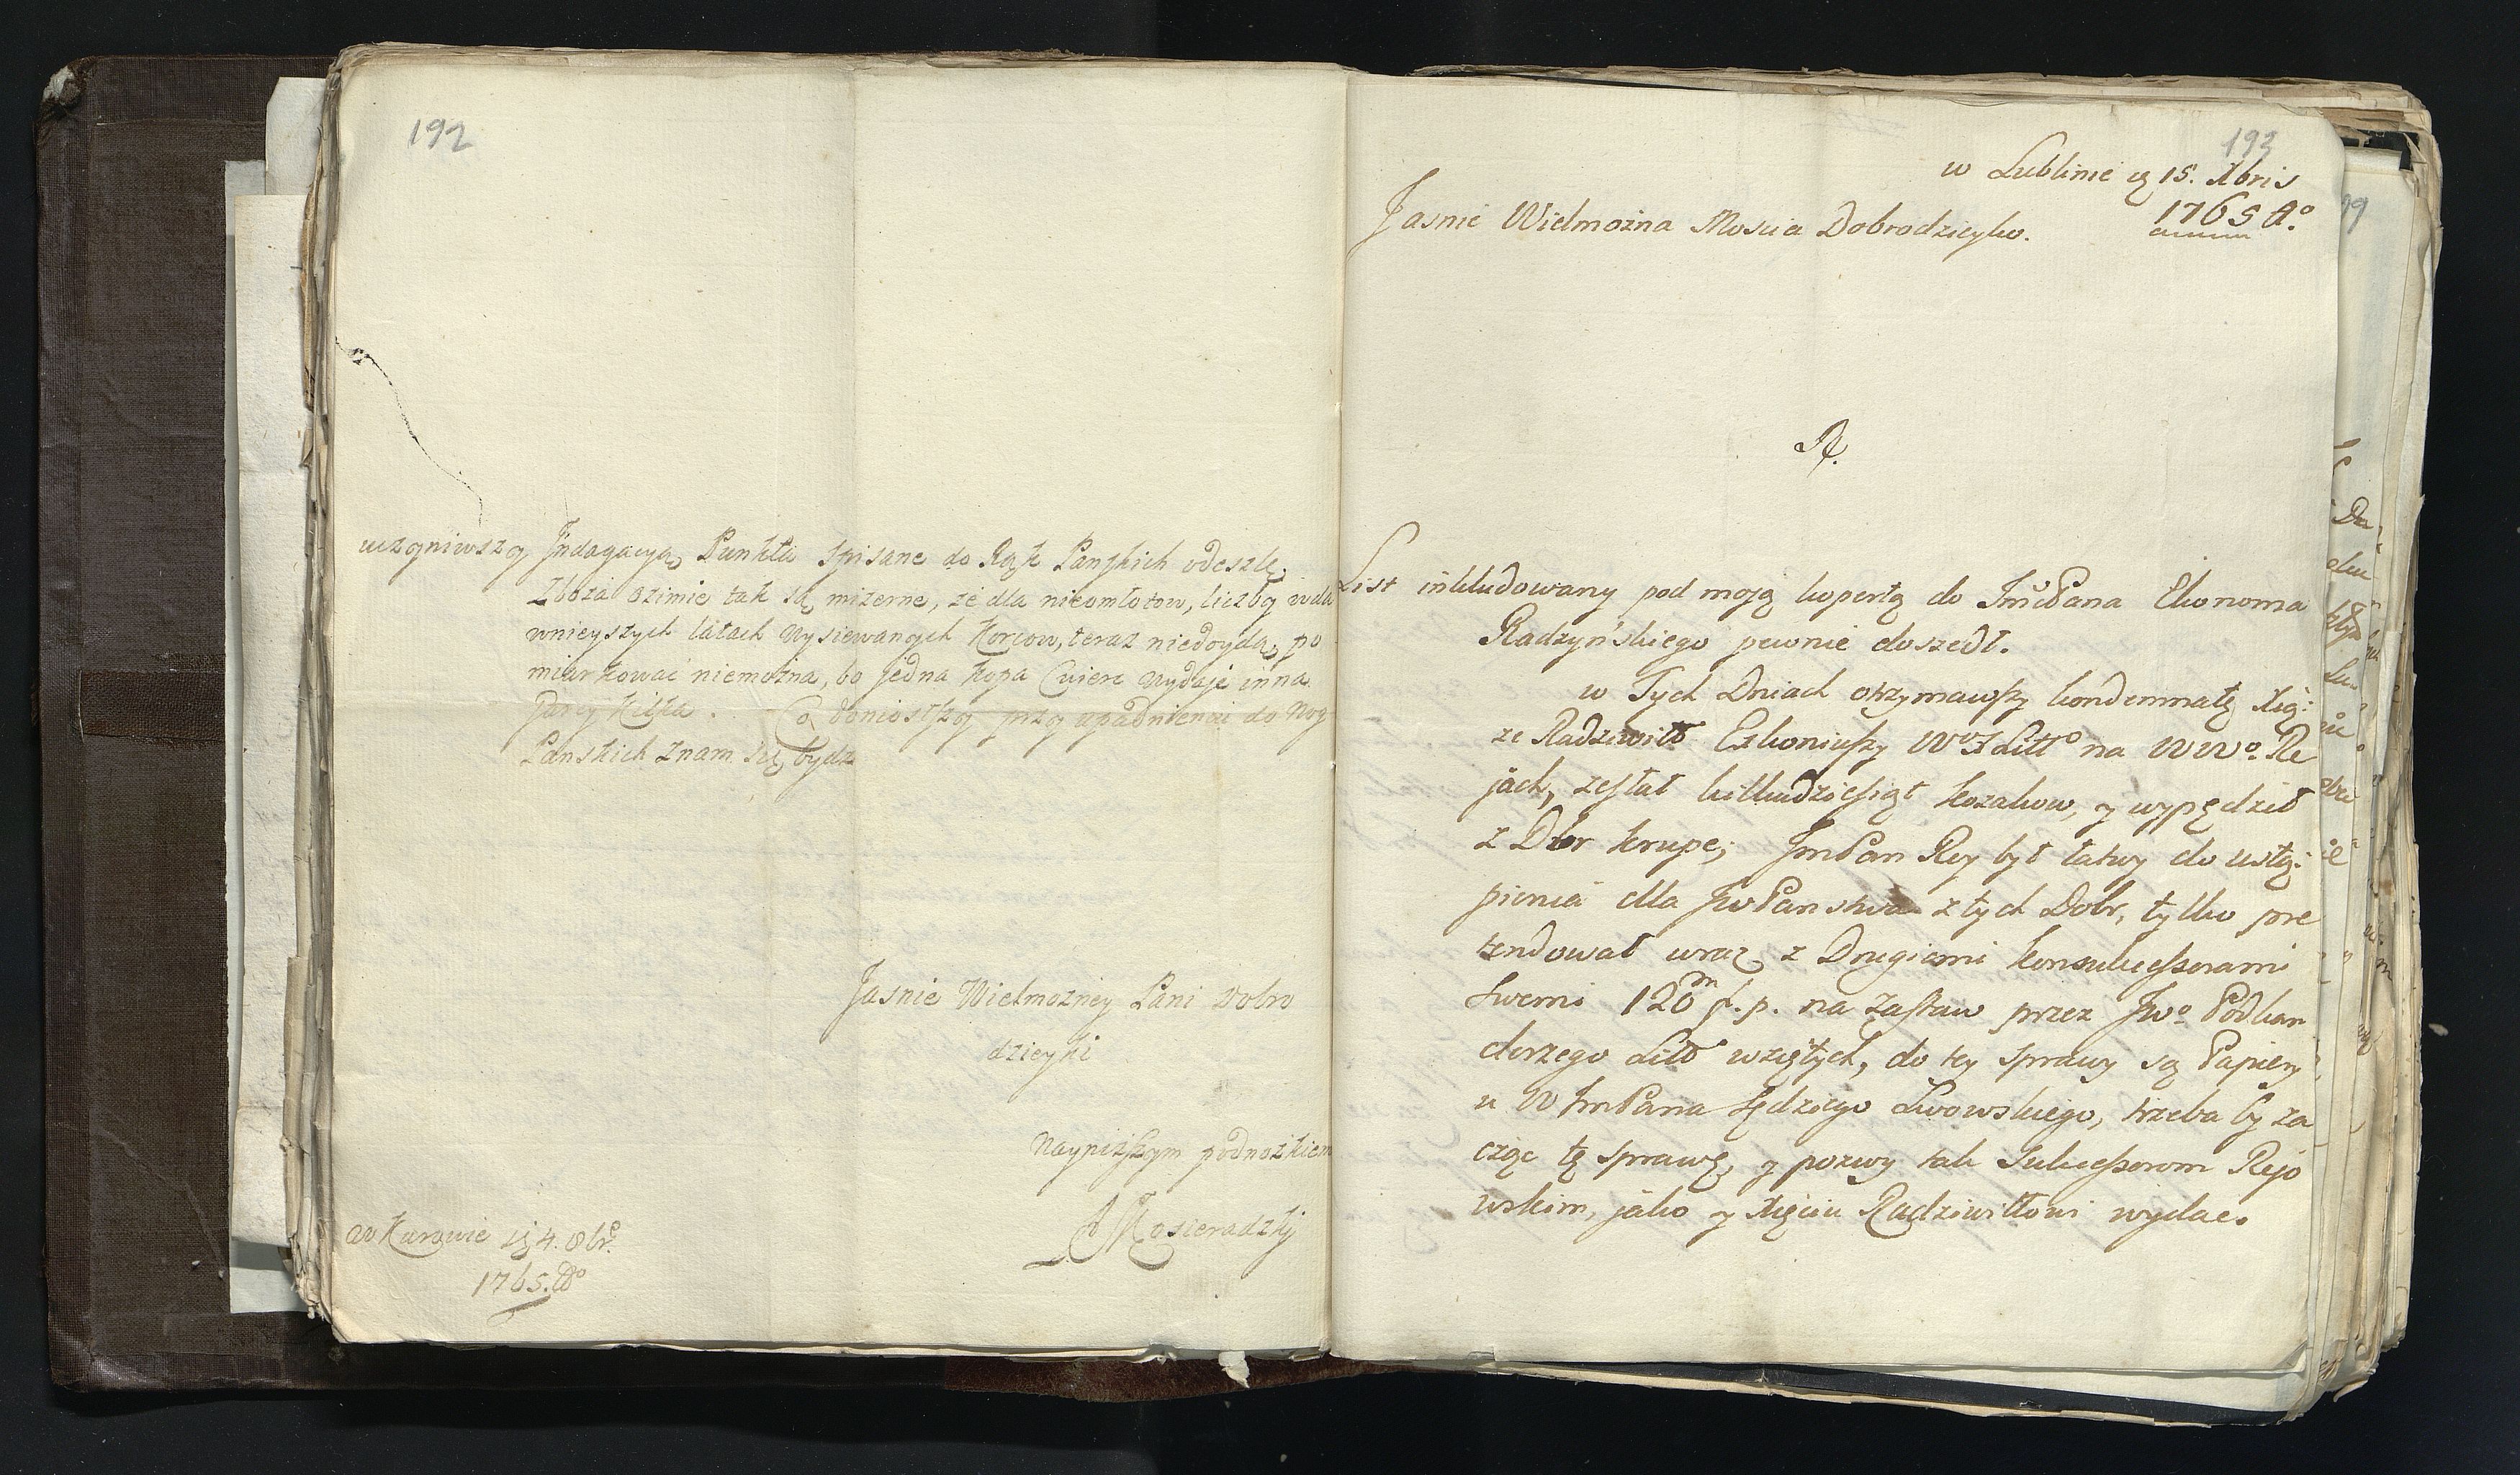 192
uczyniwszy Jndagacyą, Punkta spisane do Rąk Panskich odeszlę,
Zboza ozimie tak są mizerne, ze dla nieomłotow, liczby w da
wnieyszych latach wysiewanych Korcow, teraz niedoydą, po
miarkować niemożna, bo jedna kopa Cwierc wydaje inna
parę kilka. Co doniosłszy przy upadnieniu do Nog
Panskich znam się bydz
Jasnie Wielmozney Pani Dobro
dzieyki
Nayniższym podnożkiem
A Kosieradzkj
w Kurowie dj 4. 8br.
1765. Ao
193
w Lublinie dj 15. Xbris
1765 Ao.
Jasnie Wielmożna Mościa Dobrodzieyko.
List inkludowany pod moją kopertą do JmćPana Ekonoma
Radzyńskiego pewnie doszedł.
w Tych Dniach otrzymawszy kondemnatę Xią:
ze Radziwiłł Exkoniuszy WXLitto na WWo. Re
jach, zesłał kilkudziesiąt kozakow, y wypędził
z Dóbr krupe; JmPan Rey był łatwy do ustą:
pienia dla JwPanstwa z tych Dobr, tylko pre
tendował wraz z Drugiemi konsukcessorami
swemi 120m f. p. na zastaw przez Jwo Podkan
clerzego Litt wziętych, do tey sprawy są Papiery
u W JmPana Sędziego Lwowskiego, trzeba by za
cząc tę sprawę, y pozwy tak Sukcessorom Rejo
wskim, jako y Xięciu Radziwiłłowi wydac.